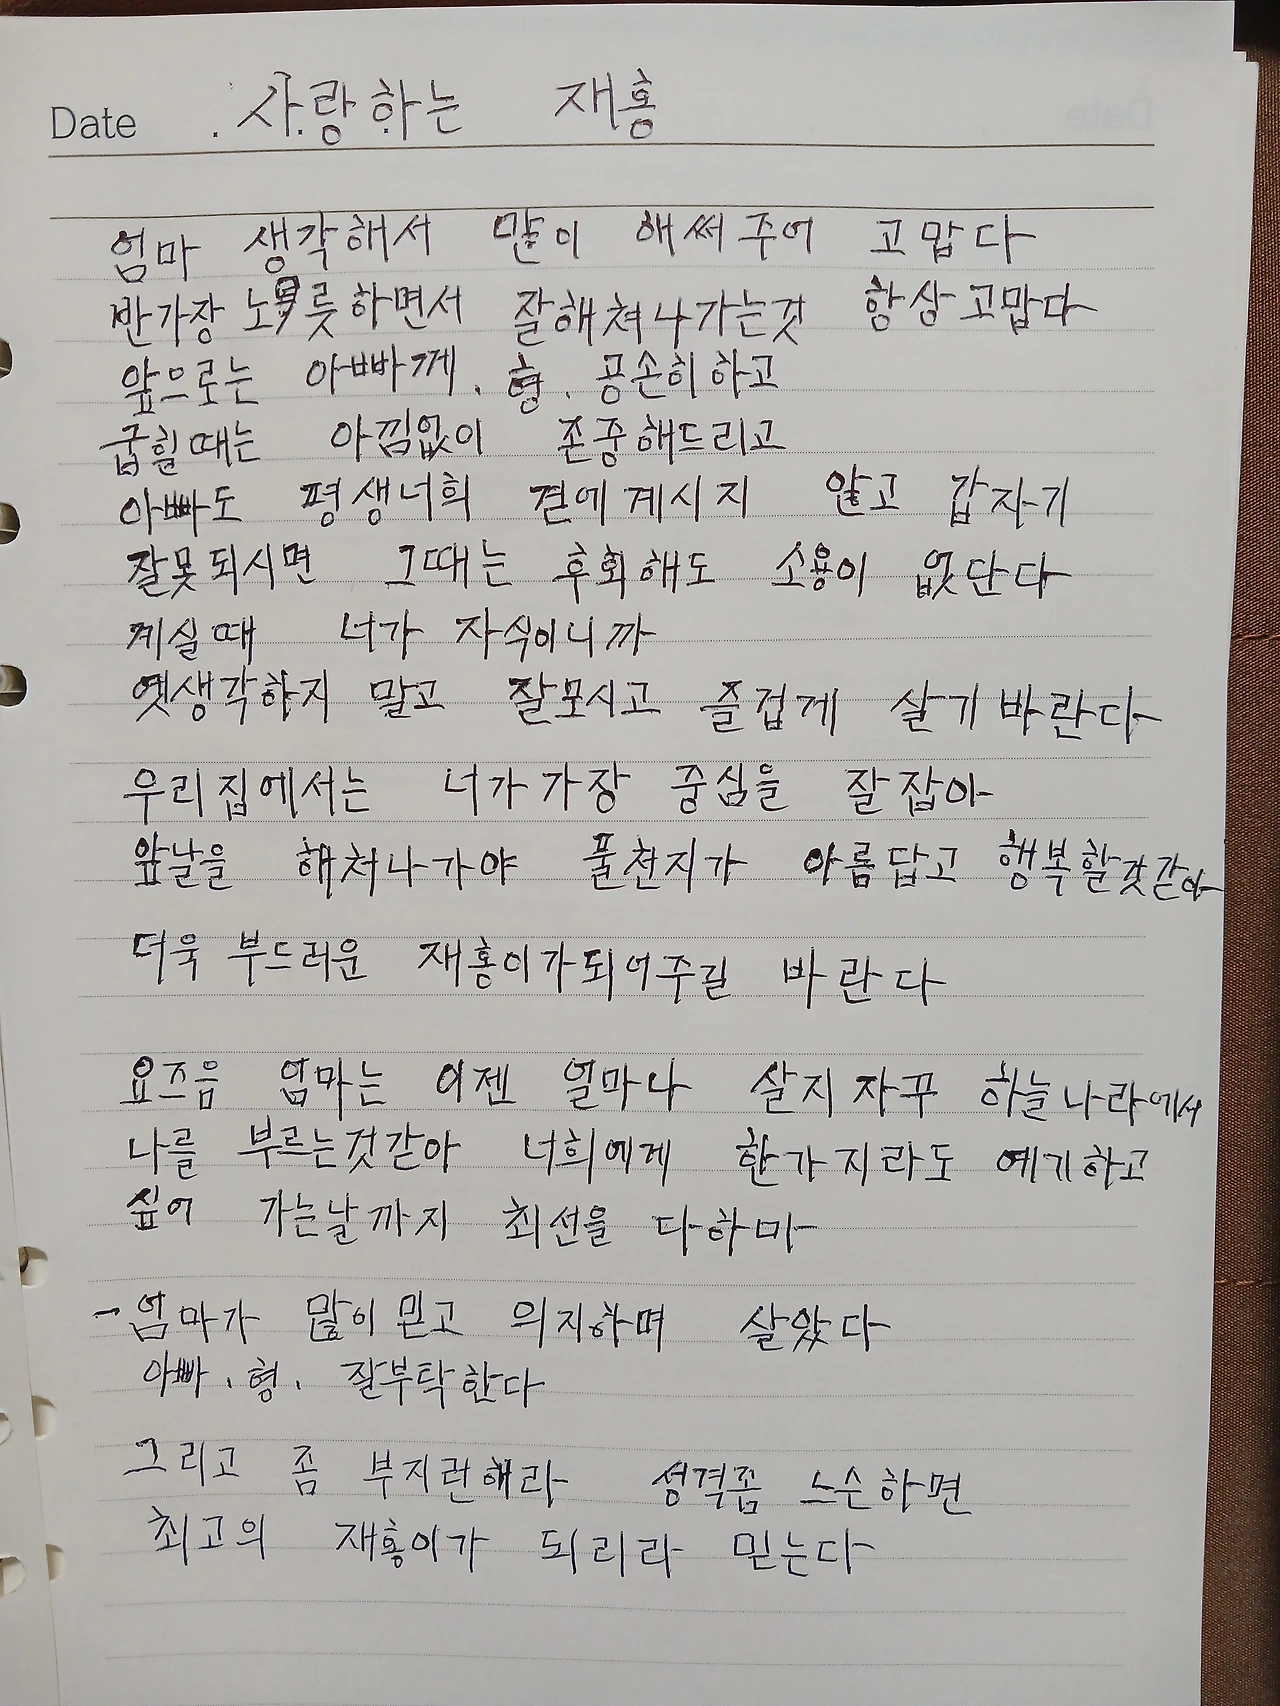 Date . 사랑하는 재홍
엄마 생각해서 많이 해써주어 고맙다
반가장 노릇하면서 잘해쳐나가는것 항상고맙다
앞으로는 아빠께. 형. 공손히하고
굽힐때는 아낌없이 존중해드리고
아빠도 평생너희 곁에계시지 않고 갑자기
잘못되시면 그때는 후회해도 소용이 없단다
계실때 너가 자식이니까
옛생각하지 말고 잘모시고 즐겁게 살기바란다
우리집에서는 너가가장 중심을 잘잡아
앞날을 해쳐나가야 풀천지가 아름답고 행복할것같아
더욱 부드러운 재홍이가되어주길 바란다
요즈음 엄마는 이젠 얼마나 살지 자꾸 하늘나라에서
나를 부르는것같아 너희에게 한가지라도 예기하고
싶어 가는날까지 최선을 다하마
- 엄마가 많이믿고 의지하며 살았다
아빠. 형. 잘부탁한다
그리고 좀 부지런해라 성격좀 느슨하면
최고의 재홍이가 되리라 믿는다